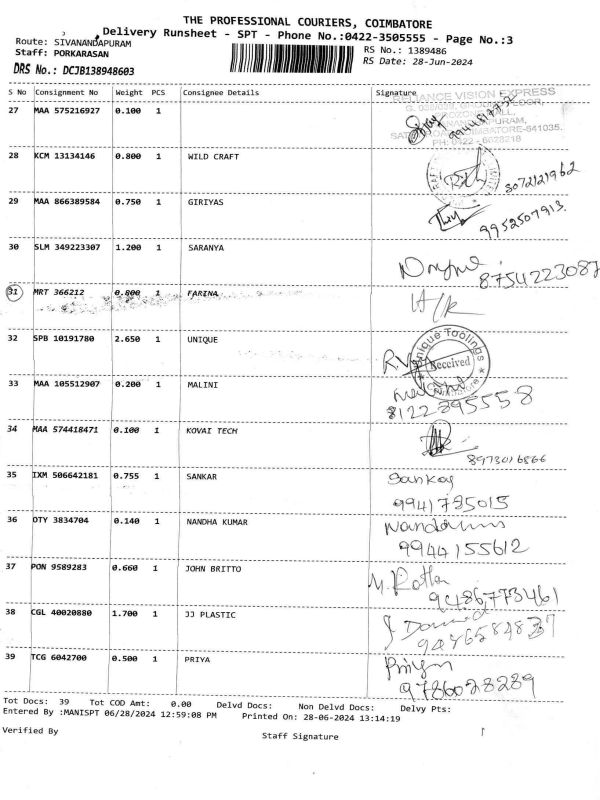 THE PROFESSIONAL COURIERS, COIMBATORE
Delivery Runsheet - SPT - Phone No.:0422-3505555 - Page No.:3
Route: SIVANANDAPURAM
Staff: PORKARASAN
RS No.: 1389486
RS Date: 28-Jun-2024
DRS No.: DCJB138948603
S No Consignment No Weight PCS Consignee Details Signature
RELIANCE VISION EXPRESS
27 MAA 575216927 0.100 1
COIMBATORE-641035.
PH: 0422 - 6028218
28 KCM 13134146 0.800 1 WILD CRAFT
3072121962
29 MAA 866389584 0.750 1 GIRIYAS
9952507913.
30 SLM 349223307 1.200 1 SARANYA
8754223087
31 MRT 366212 0.800 1 FARINA
32 SPB 10191780 2.650 1 UNIQUE
Unique Toolings
Received
Coimbatore
33 MAA 105512907 0.200 1 MALINI
8122895558
34 MAA 574418471 0.100 1 KOVAI TECH
8973016866
35 IXM 506642181 0.755 1 SANKAR
Sankar
9941795015
36 OTY 3834704 0.140 1 NANDHA KUMAR
9944155612
37 PON 9589283 0.660 1 JOHN BRITTO
9486773461
38 CGL 40020880 1.700 1 JJ PLASTIC
39 TCG 6042700 0.500 1 PRIYA
Priya
9786028289
Tot Docs: 39 Tot COD Amt: 0.00 Delvd Docs: Non Delvd Docs: Delvy Pts:
Entered By :MANISPT 06/28/2024 12:59:08 PM Printed On: 28-06-2024 13:14:19
Verified By
Staff Signature